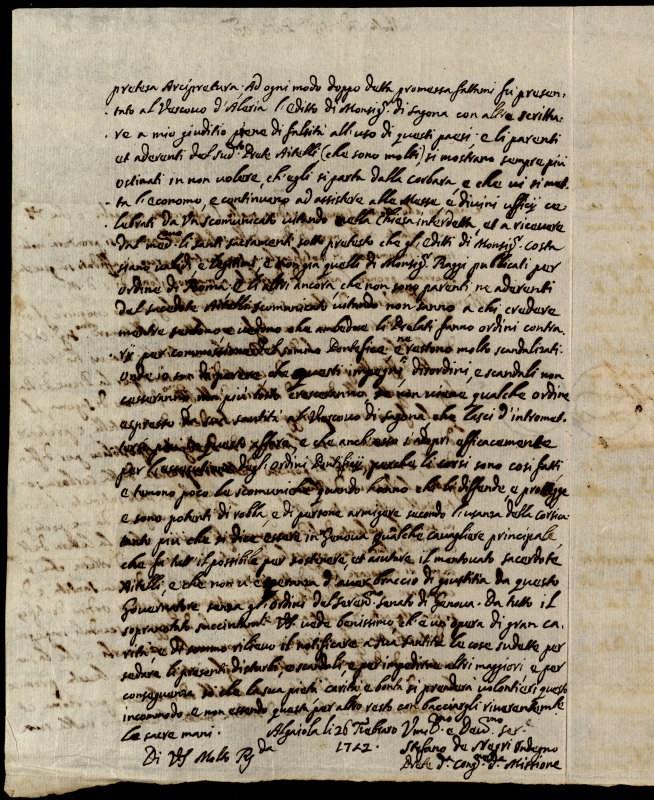 pretesa Arcipretura. Ad ogni modo doppo detta promessa fattami fu presen-
tato al Vescovo d'Aleria l'editto di Monsig.r di Sagona con altre scrittu-
re a mio giuditio piene di falsità all'uso di questi paesi e li parenti
et aderenti del sud.to Prete Aitelli (che sono molti) si mostrano sempre più
ostinati in non volere, ch'egli si parta dalla Corbara, e che vi si met-
ta l'economo, e continuano ad assistere alle Messe e divini ufficij ce-
lebrati da un scomunicato vitando nella Chiesa interdetta, et a ricevere
dal med.mo li santi sacramenti sotto pretesto che gli editti di Monsig.r Costa
siano validi e legitimi e non già quelli di Monsig.r Raggi publicati per
ordine di Roma e li altri ancora che non sono parenti ne aderenti
del sacerdote Aitelli scomunicato vitando non sanno a chi credere
mentre sentono e vedono che ambedue li Prelati fanno ordini contra-
rij per commissione del sommo Pontefice e ne restono molto scandalizati.
onde io son di parere che questi impegni, disordini, e scandali non
cesseranno non più tosto cresceranno se non viene qualche ordine
espresso da sua santità al Vescovo di Sagona che lasci d'intromet-
tersi più in questo affare, e che anch'esso s'adopri efficacemente
per l'essecutione degli ordini Pontificij, perche li Corsi sono così fatti
e temono poco le scomuniche quando hanno chi li diffende, e protegge
e sono potenti di robba, e di persone armigere secondo l'usanza della Corsica
tanto più che si dice essere in Genova qualche cavagliere principale,
che fa tutt'il possibile per sostenere, et aiutare il mentovato sacerdote
Aitelli, e che non vi è speranza d'aver braccio di giustitia da questo
Governatore senza gli ordini del Seren.mo Senato di Genova. Da tutto il
sopranotato succintam.te V.S. vede benissimo, ch'è un'opera di gran ca-
rità e di sommo rilievo il notificare a sua santità le cose sudette per
sedare li presenti disturbi e scandoli, e per impedirne altri maggiori, e per
conseguenza so che la sua pietà carità e bontà si prenderà volontieri questo
incommodo e non essendo questa per altro resto con bacciargli riverentem.te
le sacre mani. Algaiola li 26 Febraro Um.mo e Dev.mo ser.e
Di V.S. Molto R.da 1722. Stefano de Negri Indegno
Prete d.a Cong.ne d.a Missione